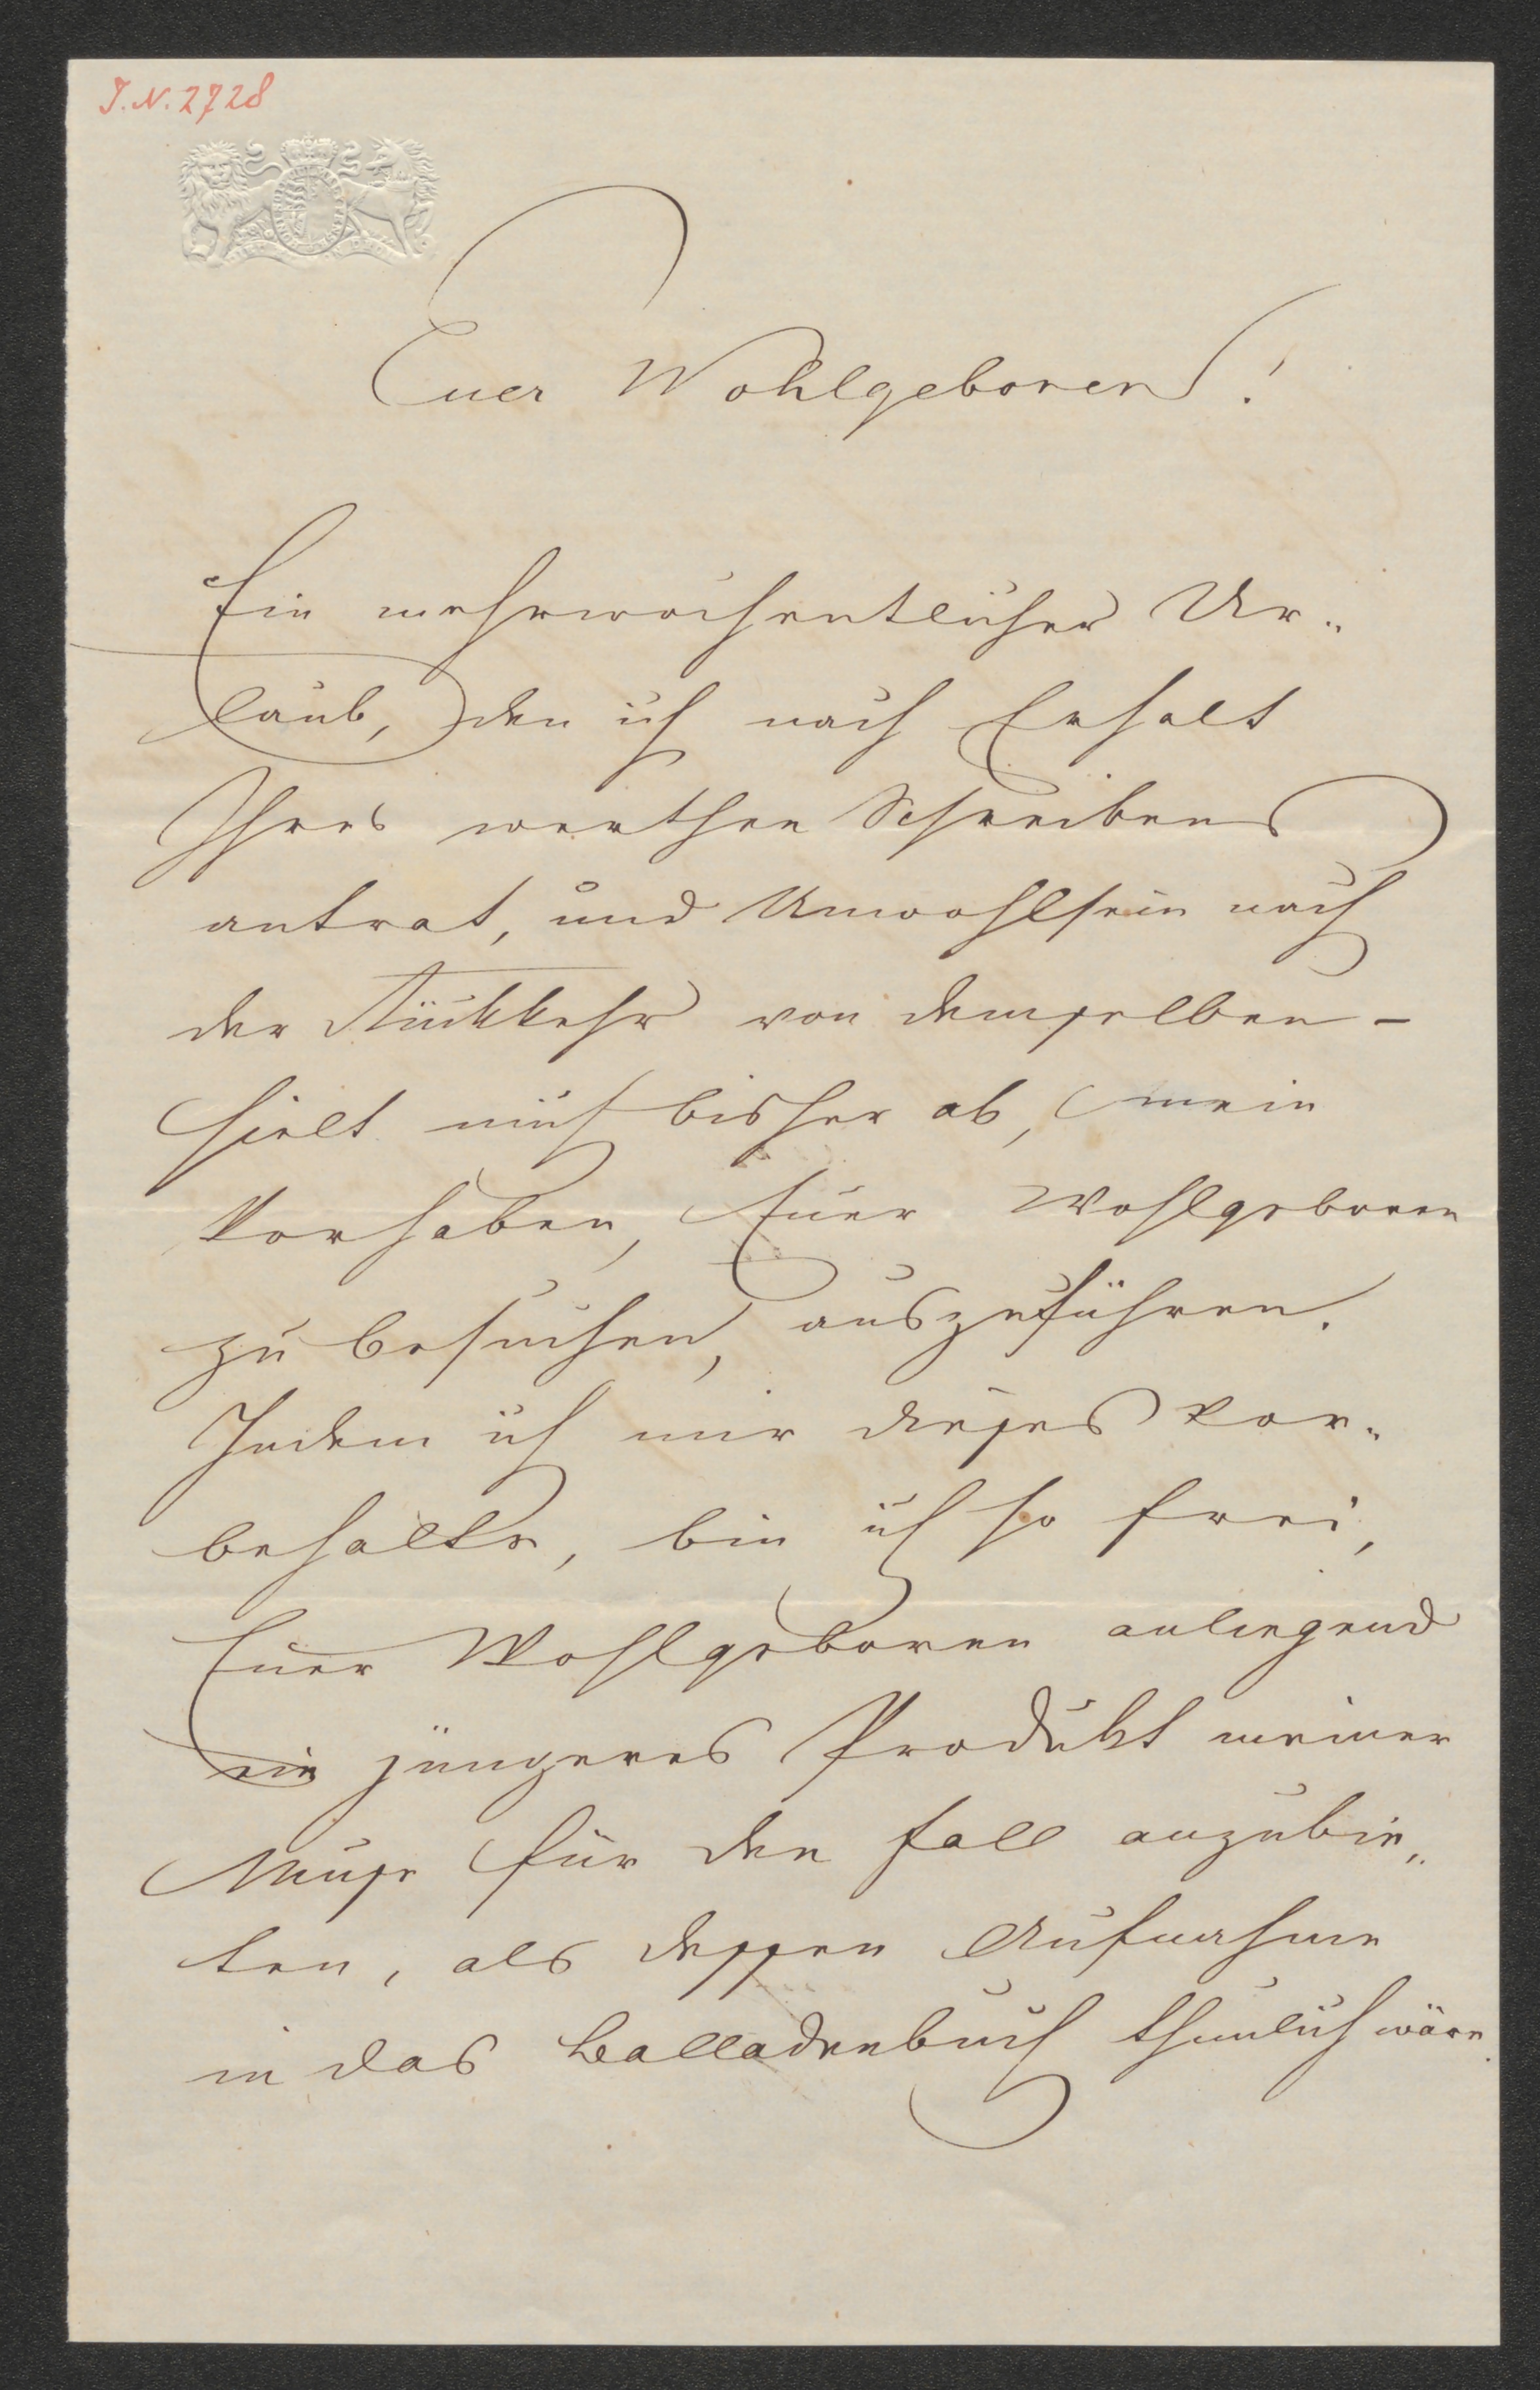 J.N. 2728
Euer Wohlgeboren!
Ein mehrwochentlicher Ur„
laub, den ich nach Erhalt
Ihres werthen Schreibens
antrat, und Unwohlsein nach
der Rückkehr von demselben –
hielt mich bisher ab, mein
Vorhaben, Euer Wohlgeboren
zu besuchen, auszuführen.
Indem ich mir dieses vor„
behalte, bin ich so frei,
Euer Wohlgeboren anliegend
ein jüngeres Produkt meiner
Muse für den Fall anzubie„
ten, als dessen Aufnahme
in das Balladenbuch thunlich wäre.